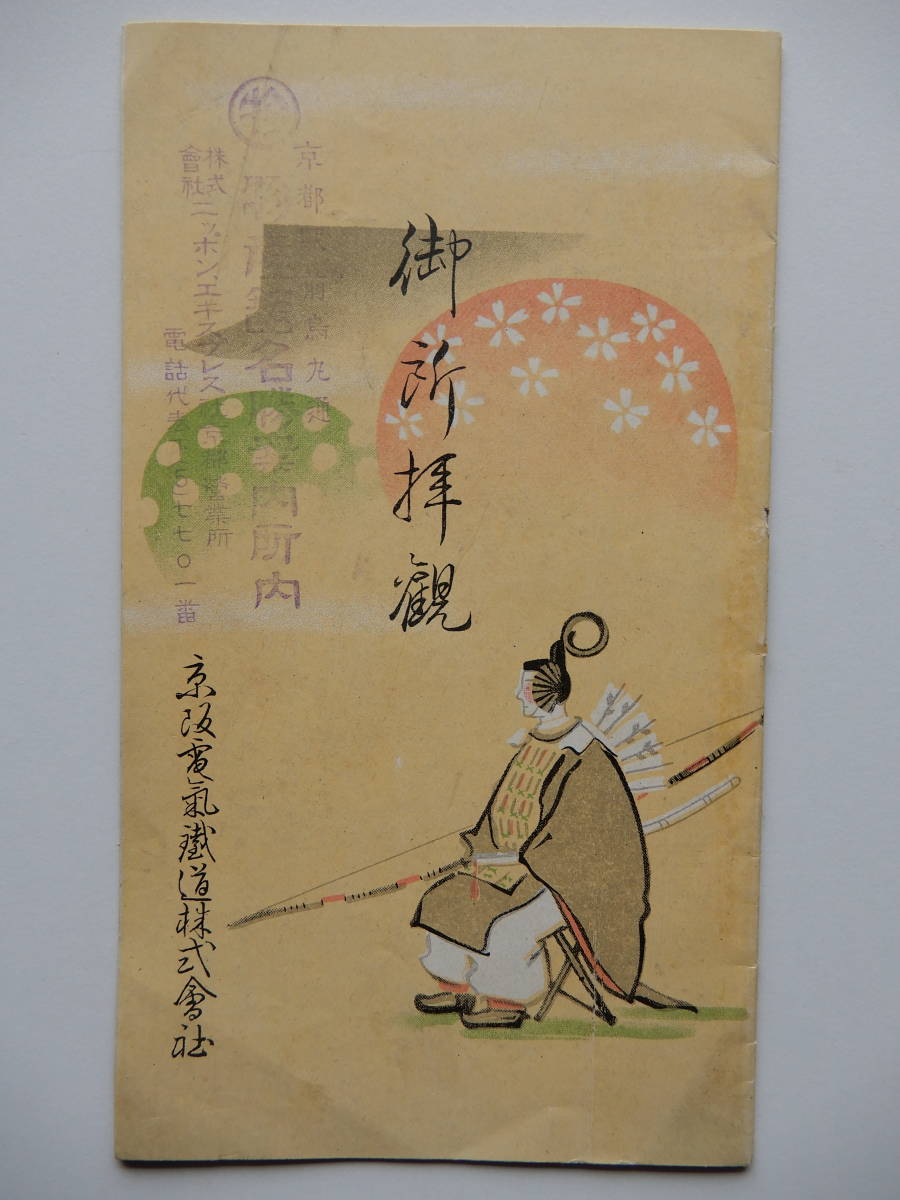 御所拝觀
京阪電氣鐵道株式會社
京都 前烏丸通
名 案内所内
株式會社ニッポン、エキスプレス京都營業所
電話代表 七七〇一番